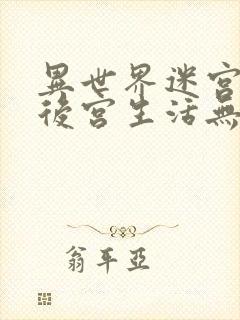 異世界迷宮
後宮生活無
翁平亞